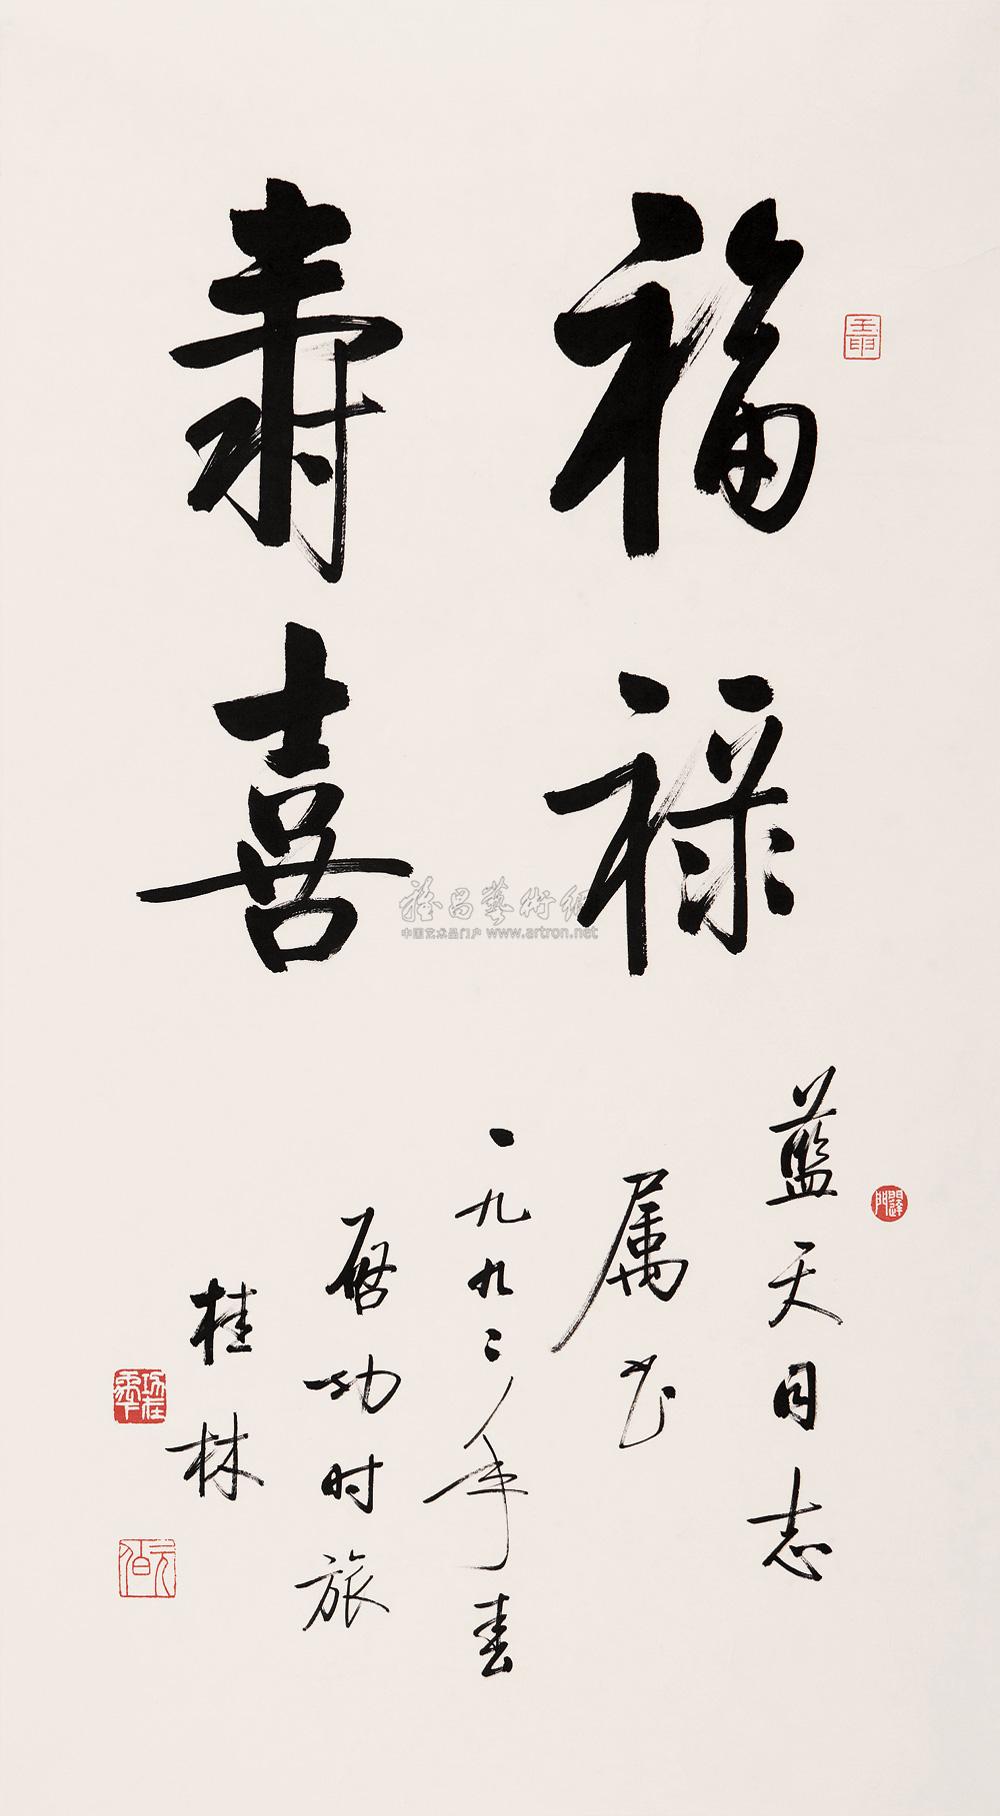 福禄
寿喜
蓝天同志
属书
一九九二年春
启功时旅
桂林
雅昌藝術網
中国艺术品门户 www.artron.net